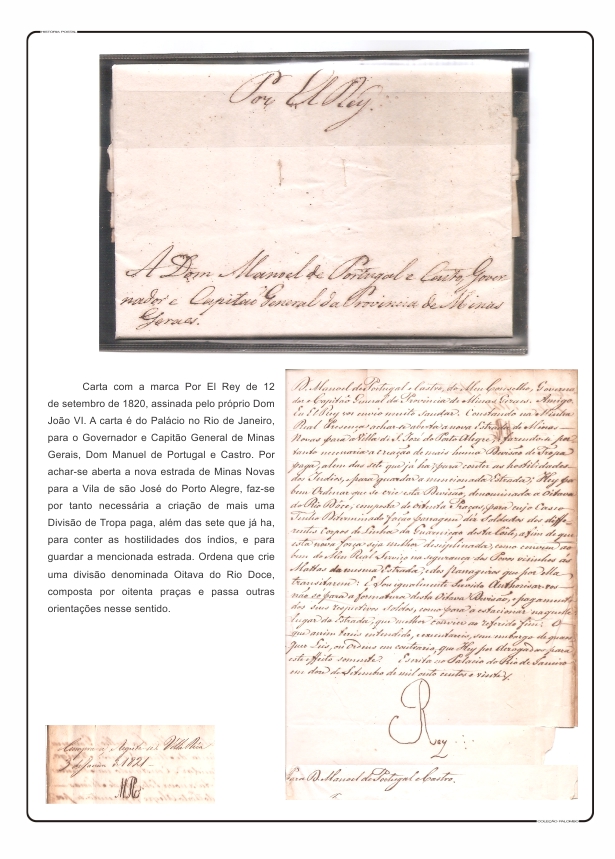 HISTÓRIA POSTAL
Por El Rey.
A Dom Manoel de Portugal e Castro, Gover
nador e Capitão General da Provincia de Minas
Geraes.
Carta com a marca Por El Rey de 12
de setembro de 1820, assinada pelo próprio Dom
João VI. A carta é do Palácio no Rio de Janeiro,
para o Governador e Capitão General de Minas
Gerais, Dom Manuel de Portugal e Castro. Por
achar-se aberta a nova estrada de Minas Novas
para a Vila de são José do Porto Alegre, faz-se
por tanto necessária a criação de mais uma
Divisão de Tropa paga, além das sete que já ha,
para conter as hostilidades dos índios, e para
guardar a mencionada estrada. Ordena que crie
uma divisão denominada Oitava do Rio Doce,
composta por oitenta praças e passa outras
orientações nesse sentido.
D. Manoel de Portugal e Castro, do Meu Conselho, Governa
dor e Capitão General da Provincia de Minas Geraes. Amigo.
Eu El Rey vos envio muito saudar. Constando na Minha
Real Presença achar-se aberta a nova Estrada de Minas
Novas para a Villa de S. Joze do Porto Alegre, fazendo-se por
tanto necessaria a creação de mais huma Divisão de Tropa
paga, alem das sete que já ha, para conter as hostilidades
dos Indios, e para guardar a mencionada Estrada; Hey por
bem Ordenar que se crie esta Divisão, denominada a Oitava
do Rio Doce, composta de oitenta Praças, para cujo
Tenho Determinado passagem dos Soldados dos diffe
rentes Corpos de Linha da Guarnição desta Corte, a fim de que
esta nova força seja melhor desciplinada, como convem ao
bem do Meu Real Serviço na segurança dos Povos visinhos ás
Mattas da mesma Estrada, e dos Passageiros que por ella
transitarem: E Sou igualmente Servido Authorizar-vos
não só para a formatura desta Oitava Divisão, e pagamento
dos seus respectivos soldos, como para a estacionar naquelle
lugar da Estrada, que melhor convier ao referido fim: O
que assim tereis intendido, e executareis, sem embargo de quaes
quer Leis, ou Ordens em contrario, que Hey por derogadas para
este effeito somente. Escrita no Palacio do Rio de Janeiro
em doze de Setembro de mil oito centos e vinte.
Rey
Cumpra-se, e Registe-se. Villa Rica
de Janeiro de 1821
Para D. Manoel de Portugal e Castro.
COLEÇÃO PALOMBO